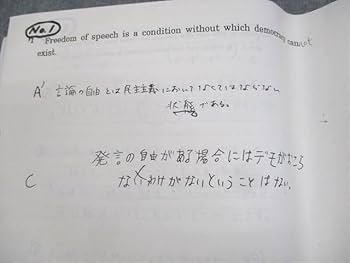 No.1
1 Freedom of speech is a condition without which democracy cannot
exist.
A' 言論の自由とは民主主義においてなくてはならない
状態である。
発言の自由がある場合にはデモがおこら
C ないわけがないということはない。